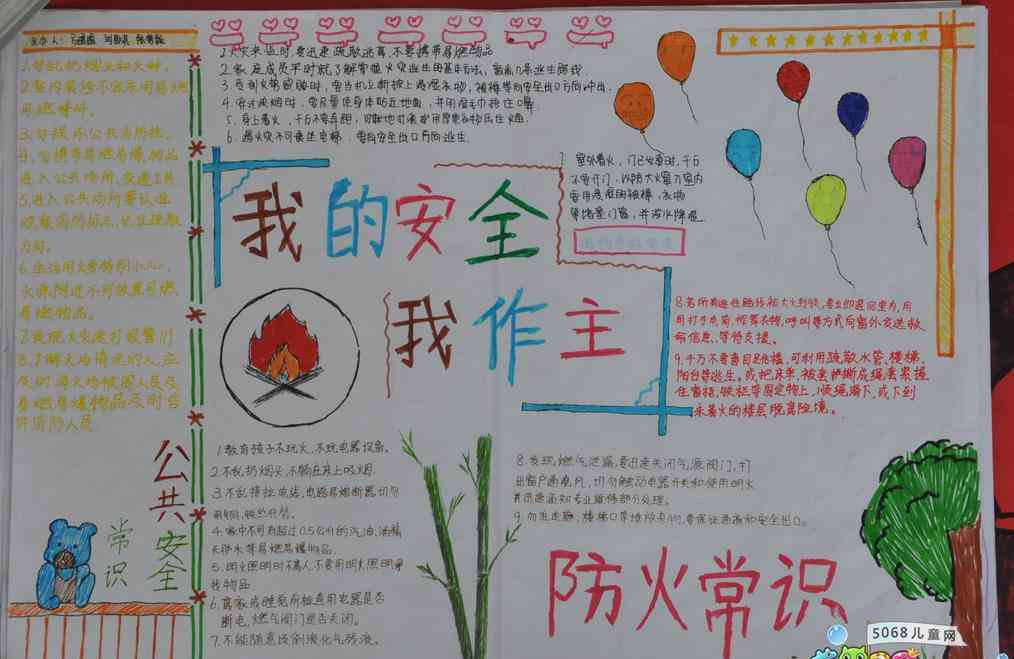 主办人:
我的安全
我作主
1.火灾来临时,要迅速疏散逃离,不要携带易燃物品
2.家庭成员平时就了解掌握火灾逃生的基本方法,熟悉几条逃生路线.
4.穿过浓烟时,尽量使身体贴近地面,并用湿毛巾捂住口鼻.
5.身上着火,千万不要奔跑,可就地打滚或用厚重衣物压住火苗.
6.遇火灾不可乘坐电梯,要向安全出口方向逃生.
7.室外着火,门已发烫时,千万
不要开门,以防大火窜入室内
要用浸湿的被褥、衣物
等堵塞门窗,并泼水降温.
8.若所有逃生路线被大火封锁,要立即退回室内,用
用打手电筒,挥舞衣物,呼叫等方式向窗外发送救
命信息,等待支援。
9.千万不要盲目跳楼,可利用疏散水管、楼梯、
阳台等逃生。或把床单、被套撕成绳索,紧拴
住窗格、铁栏等固定物上,顺绳滑下,或下到
未着火的楼层脱离险境。
3.勿娱乐公共场所抽。
4.勿携带易燃易爆物品
进入公共场所、交通工具
5.进入公共场所要认准
观察
方向。
6.生活用火要特别小心,
火源附近不可放置可燃
易燃物品。
7.发现火灾速打报警119
8.了解火场情况的人,应
及时将火场被困人员及
易燃易爆物品及时告
诉消防人员
公共
安全
常识
1.教育孩子不玩火,不玩电器设备。
2.不乱扔烟头,不躺在床上吸烟.
3.不乱接拉电线,电路易熔断器切勿
4.家中不可存超过0.5公斤的汽油,酒精
天那水等易燃易爆物品。
5.明火照明时不离人,不要用明火照明寻
找物品
6.离家或睡觉前检查用电器是否
断电,燃气阀门是否关闭。
7.不能随意倾倒液化气残液。
8.发现燃气泄漏,要迅速关闭气源阀门,打
开窗户通风,切勿触动电器开关和使用明火
并迅速通知专业维修部分处理。
9.勿在走廊,楼梯口等堆放杂物,要保证通道和安全出口。
防火常识
5068儿童网